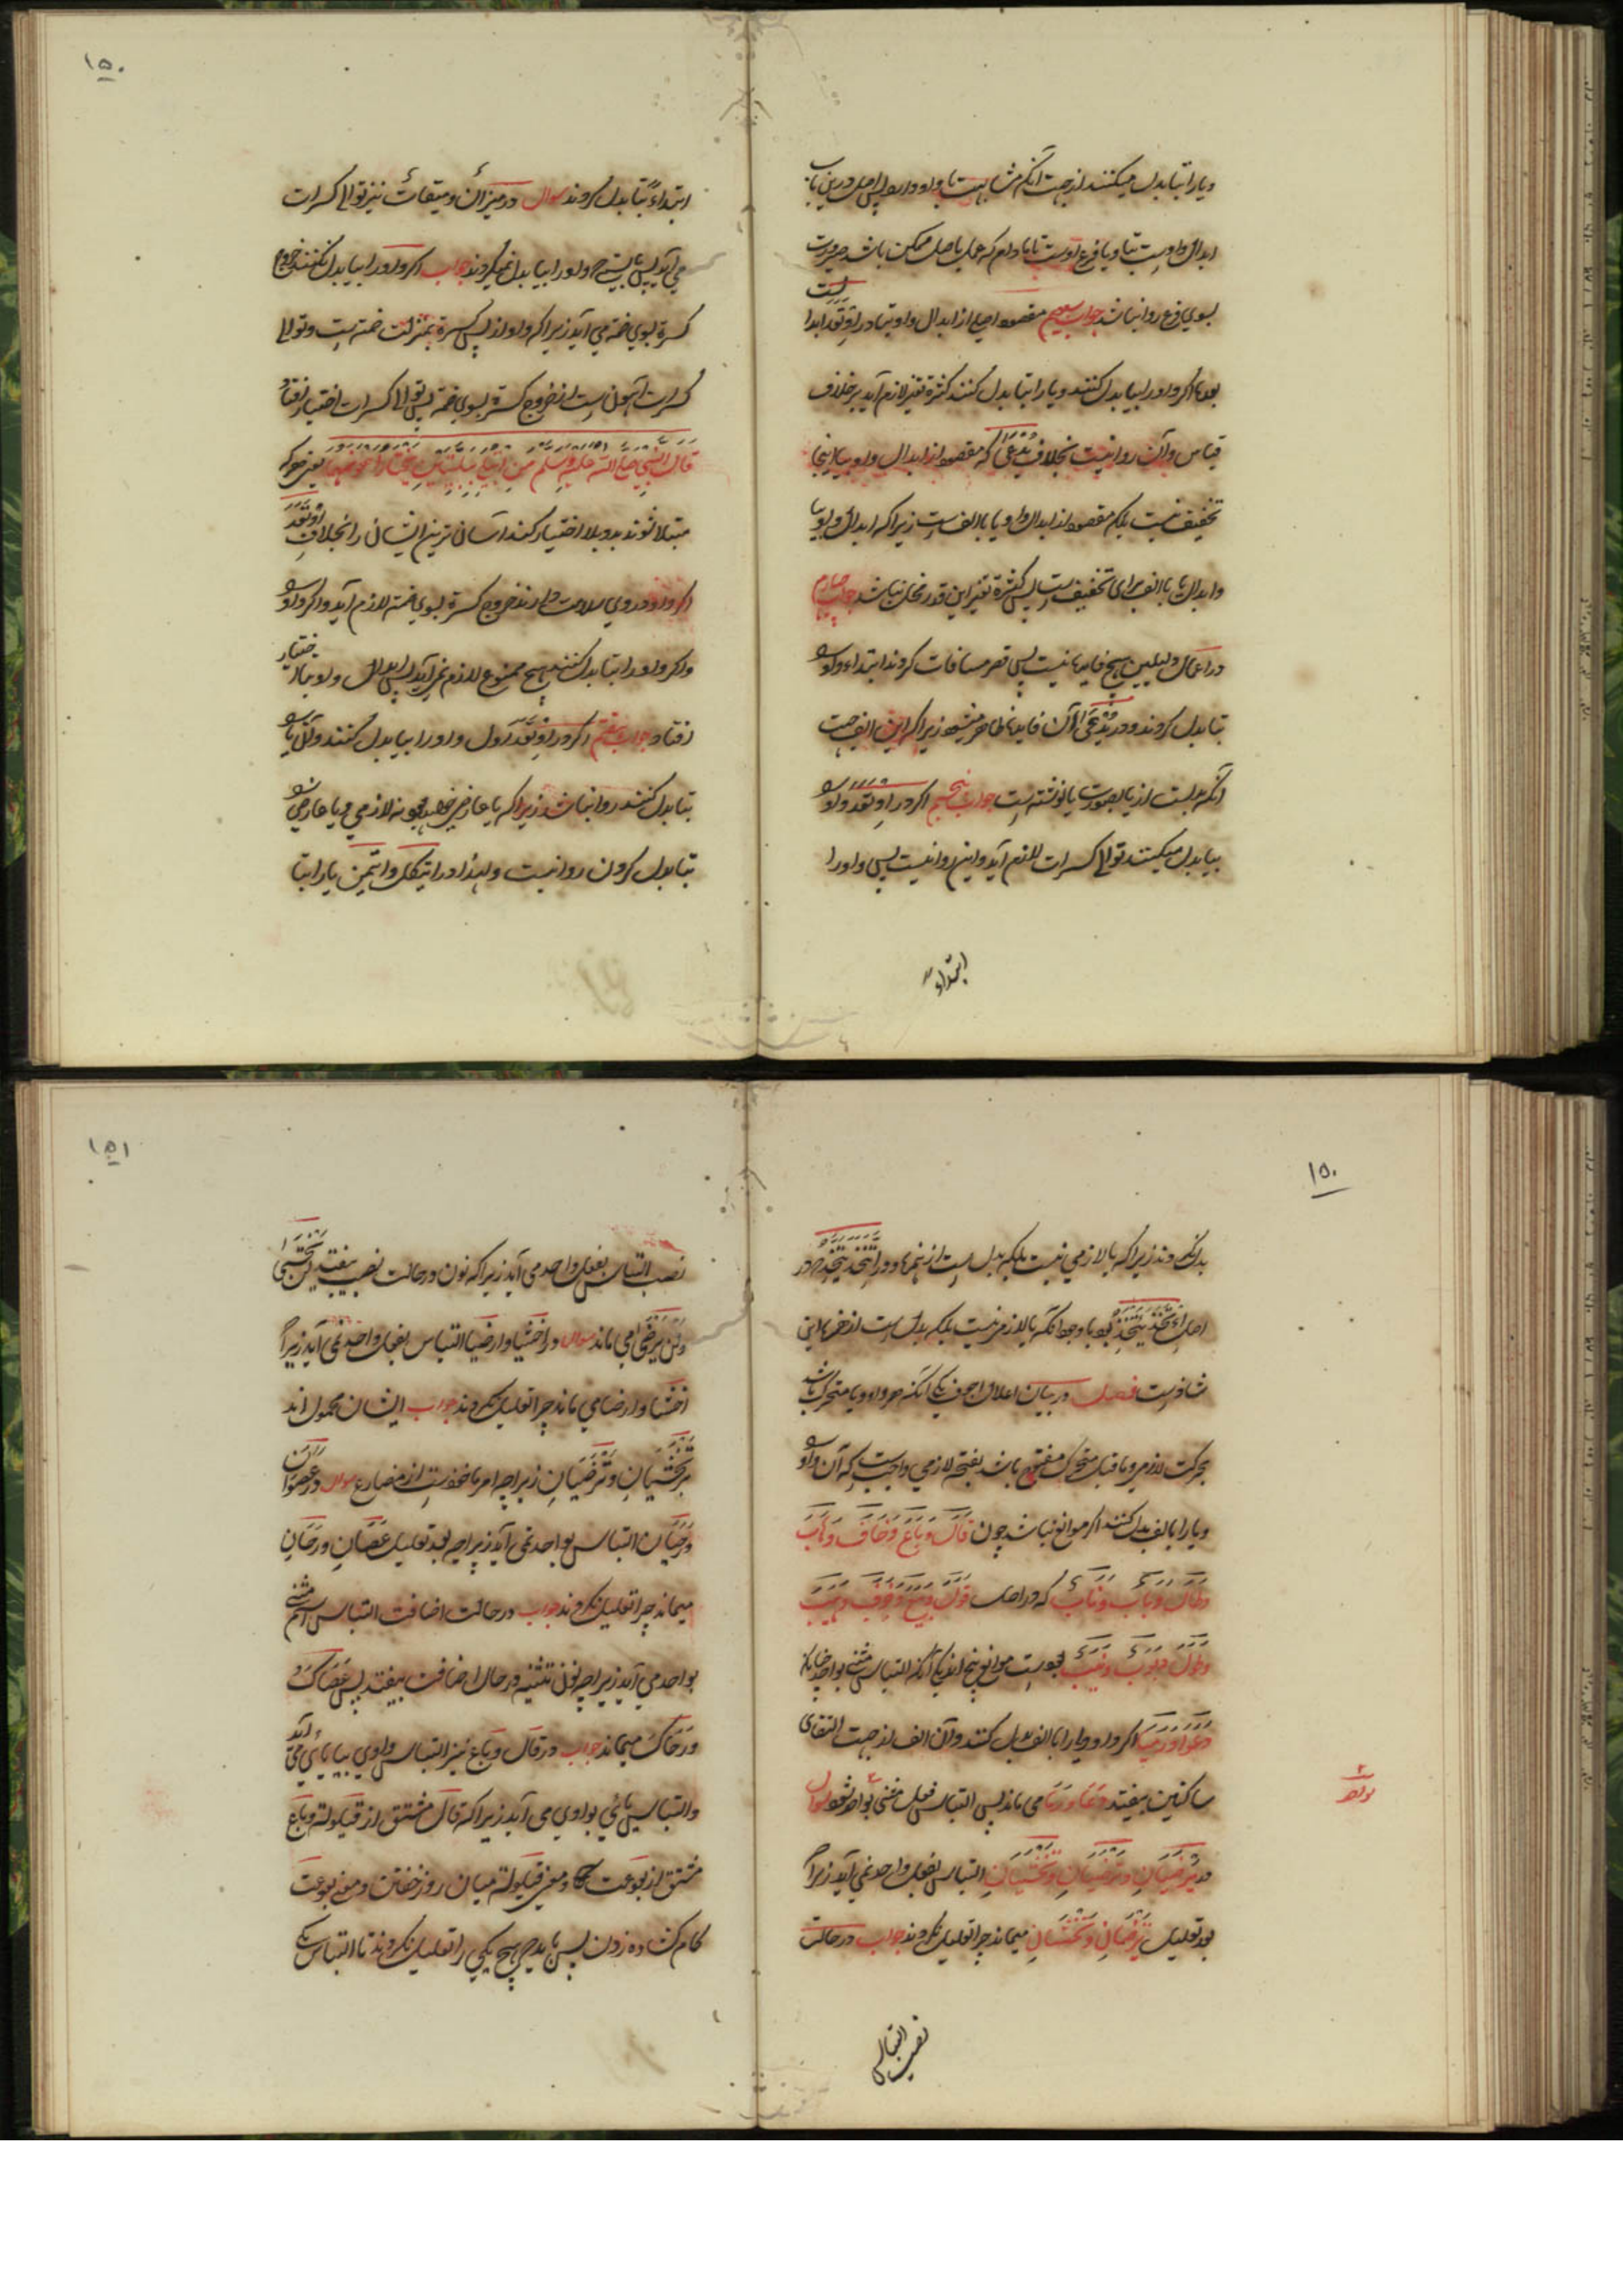 ویا را بتا بدل میکنند از جهت آنکه مشابهت با واو دارد پس اصل درین باب
ابدال واوست بتا و یا فرع اوست تا مادام که عمل باصل ممکن باشد ضرورت
بسوی فرع روا نباشد جواب سیوم مقصود اصلی از ابدال واو بتا در اوتقد ابتدا
بود اگر واو را بیا بدل کنند و یا را بتا بدل کنند کثرة تغیر لازم آید بر خلاف
قیاس وآن روا نیست بخلاف یدعی که مقصود از ابدال واو بیا اینجا
تخفیف نیست بلکه مقصود از ابدال واو یا با الف است زیراکه ابدال واو بیا
وابدال یا بالف برای تخفیف ست پس کثرة تغیر این قدر مخل نباشد جواب چهارم
در اعمال دلیلین هیچ فایده نیست پس قصر مسافات کردند ابتداء واو
بتا بدل کردند ودر یدعی آن فایده ظاهر میشود زیراکه این الف جهت
آنکه بدلست از یا بصورت یا نوشته است جواب پنجم اگر در اوتقد واو
بیا بدل میکنند توالی کسرات لازم آید واین روا نیست پس واو را
ابتداء
۱۵۰
ابتداءً بتا بدل کردند سوال در میزان ومیقات نیز توالی کسرات
می آید پس بایستی واو را بیا بدل نمیکردند جواب اگر واو را بیا بدل نکنند خروج
کسرة بسوی ضمه می آید زیراکه واو از پس کسرة بمنزلت ضمه است وتوالی
کسرات آسان ست از خروج کسرة بسوی ضمه پس توالی کسرات اختیار افتاد
قال النبی صلی الله علیه وسلم من ابتلی ببلیتین یختار اهونهما یعنی هر که
مبتلا شوند بدو بلا اختیار کند آسان ترین ایشان را بخلاف اوتقد
اگر واو در وی سلامت دارند خروج کسرة بسوی ضمه لازم آید واگر واو
واگر واو را بتا بدل کنند هیچ ممنوع لازم نمی آید پس ابدال واو بتا اختیار
افتاد جواب ششم اگر در اوتقد اول واو را بیا بدل کنند وآن یا
بتا بدل کنند روا نباشد زیراکه یا عارضی خواهد بود نه لازمی ویا عارضی
بتا بدل کردن روا نیست ولهذا در ایتکل وایتمن یا را بتا
۱۵۰
بدل نکردند زیراکه یا لازمی نیست بلکه بدل ست از همزه ودر اتخذ یتخذ که در
اصل ایتخذ یتخذ بود با وجود آنکه یا لازمی نیست بلکه بدل ست از همزه این
شاذ ست فصل در بیان اعلال اجوف یکی آنکه هر واو ویا متحرک باشد
بحرکت لازم وماقبل متحرک مفتوح باشد بفتحه لازمی واجب ست که آن واو
ویا را بالف بدل کنند اگر موانع نباشد چون قال وباع وخاف وهاب
وطال وباب وناب که در اصل قول وبیع وخوف وهیب
وطول وبوب ونیب بودست موانع پنج اند یکی آنکه التباس مثنی بواحد چنانکه
دعوا ورمیا اگر واو ویا را با الف بدل کنند وآن الف از جهت التقای
ساکنین بیفتد دعا ورما می ماند پس التباس فعل مثنی بواحد شود سوال
در یرضیان وترضیان وتخشیان التباس بفعل واحد نمی آید زیرا
بعد تعلیل یرضان وتخشان میماند چرا تعلیل نکردند جواب در حالت
بواحد
نصب التباس
۱۵۱
نصب التباس بفعل واحد می آید زیراکه نون در حالت نصب بیفتد لن تخشی
ولن یرضی می ماند سوال در اخشیا وارضیا التباس بفعل واحد نمی آید زیرا
اخشا وارضا می ماند چرا تعلیل نکردند جواب ایشان محمول اند
بر تخشیان وترضیان زیراچه امر ماخوذست از مضارع سوال در عصوان
ورحیان التباس بواحد نمی آید زیراچه بعد تعلیل عصان ورحان
میماند چرا تعلیل نکردند جواب در حالت اضافت التباس اسم مثنی
بواحد می آید زیراچه نون تثنیه در حال اضافت بیفتد پس عصاک
ورحاک میماند جواب در قال وباع نیز التباس واوی بیایی می آید
والتباس یائی بواوی می آید زیراکه قال مشتق از قیلولة وباع
مشتق از بوعت ومعنی قیلولة میان روز خفتن ومعنی بوعت
کام کشاده زدن پس باید هیچ یکی را تعلیل نکردند تا التباس یکی